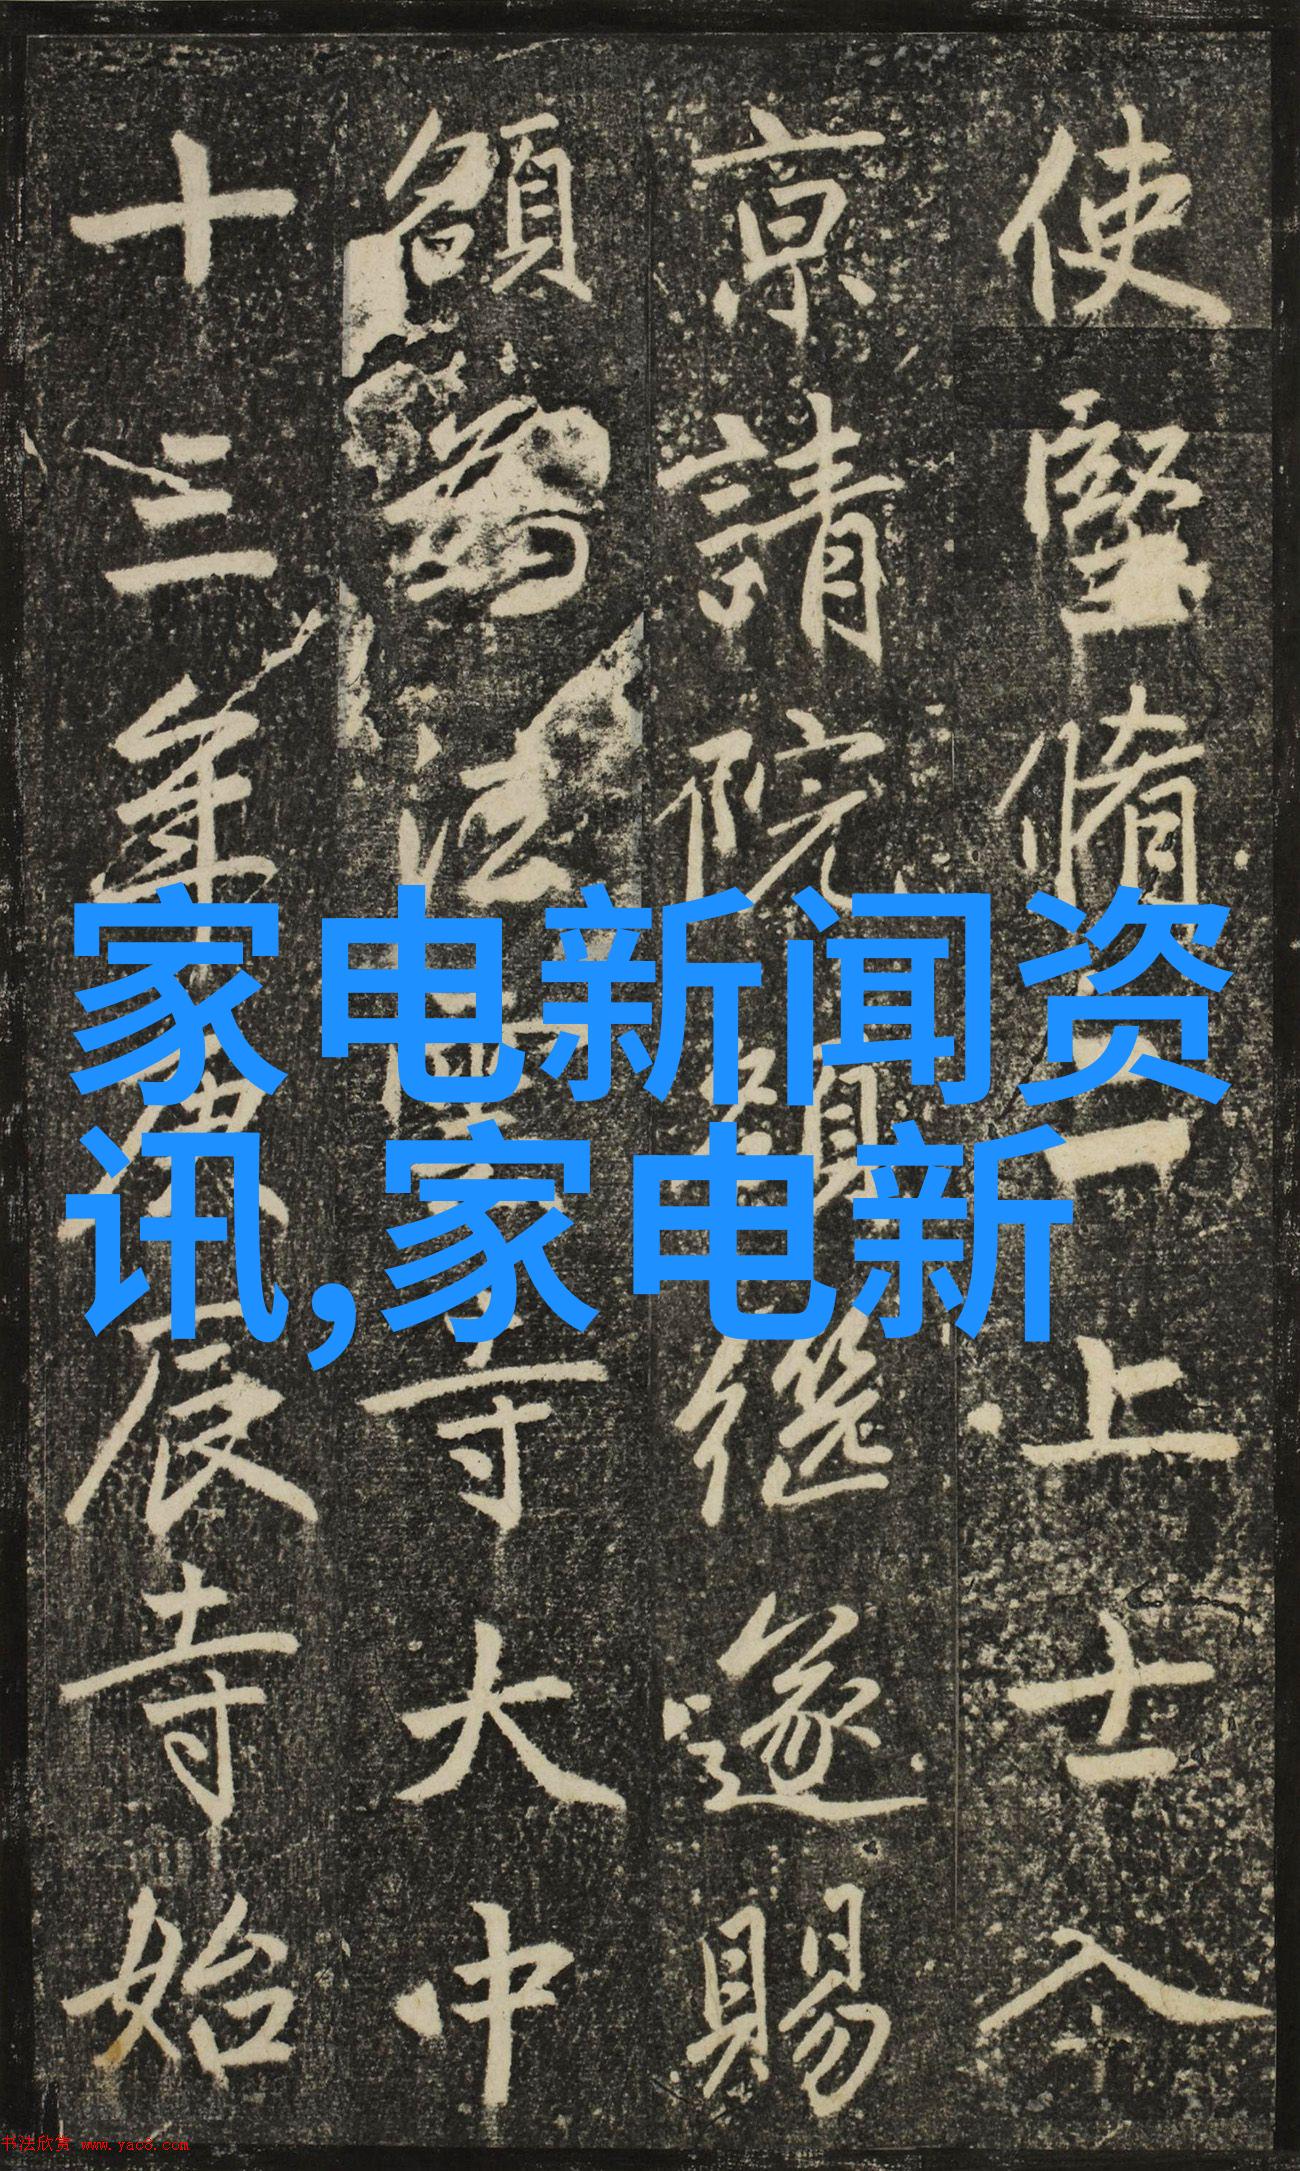 使堅脩二上士入
京請院額繼遂賜
額為法寺大中
十三年庚辰寺始
家电新闻资
讯,家电新
书法欣赏 www.yac8.com